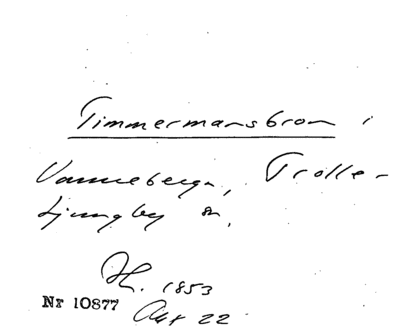 Timmermansbron i
Vanneberga, Trolle-
Ljungby sn.
H. 1853
Nr 10877
Akt 22